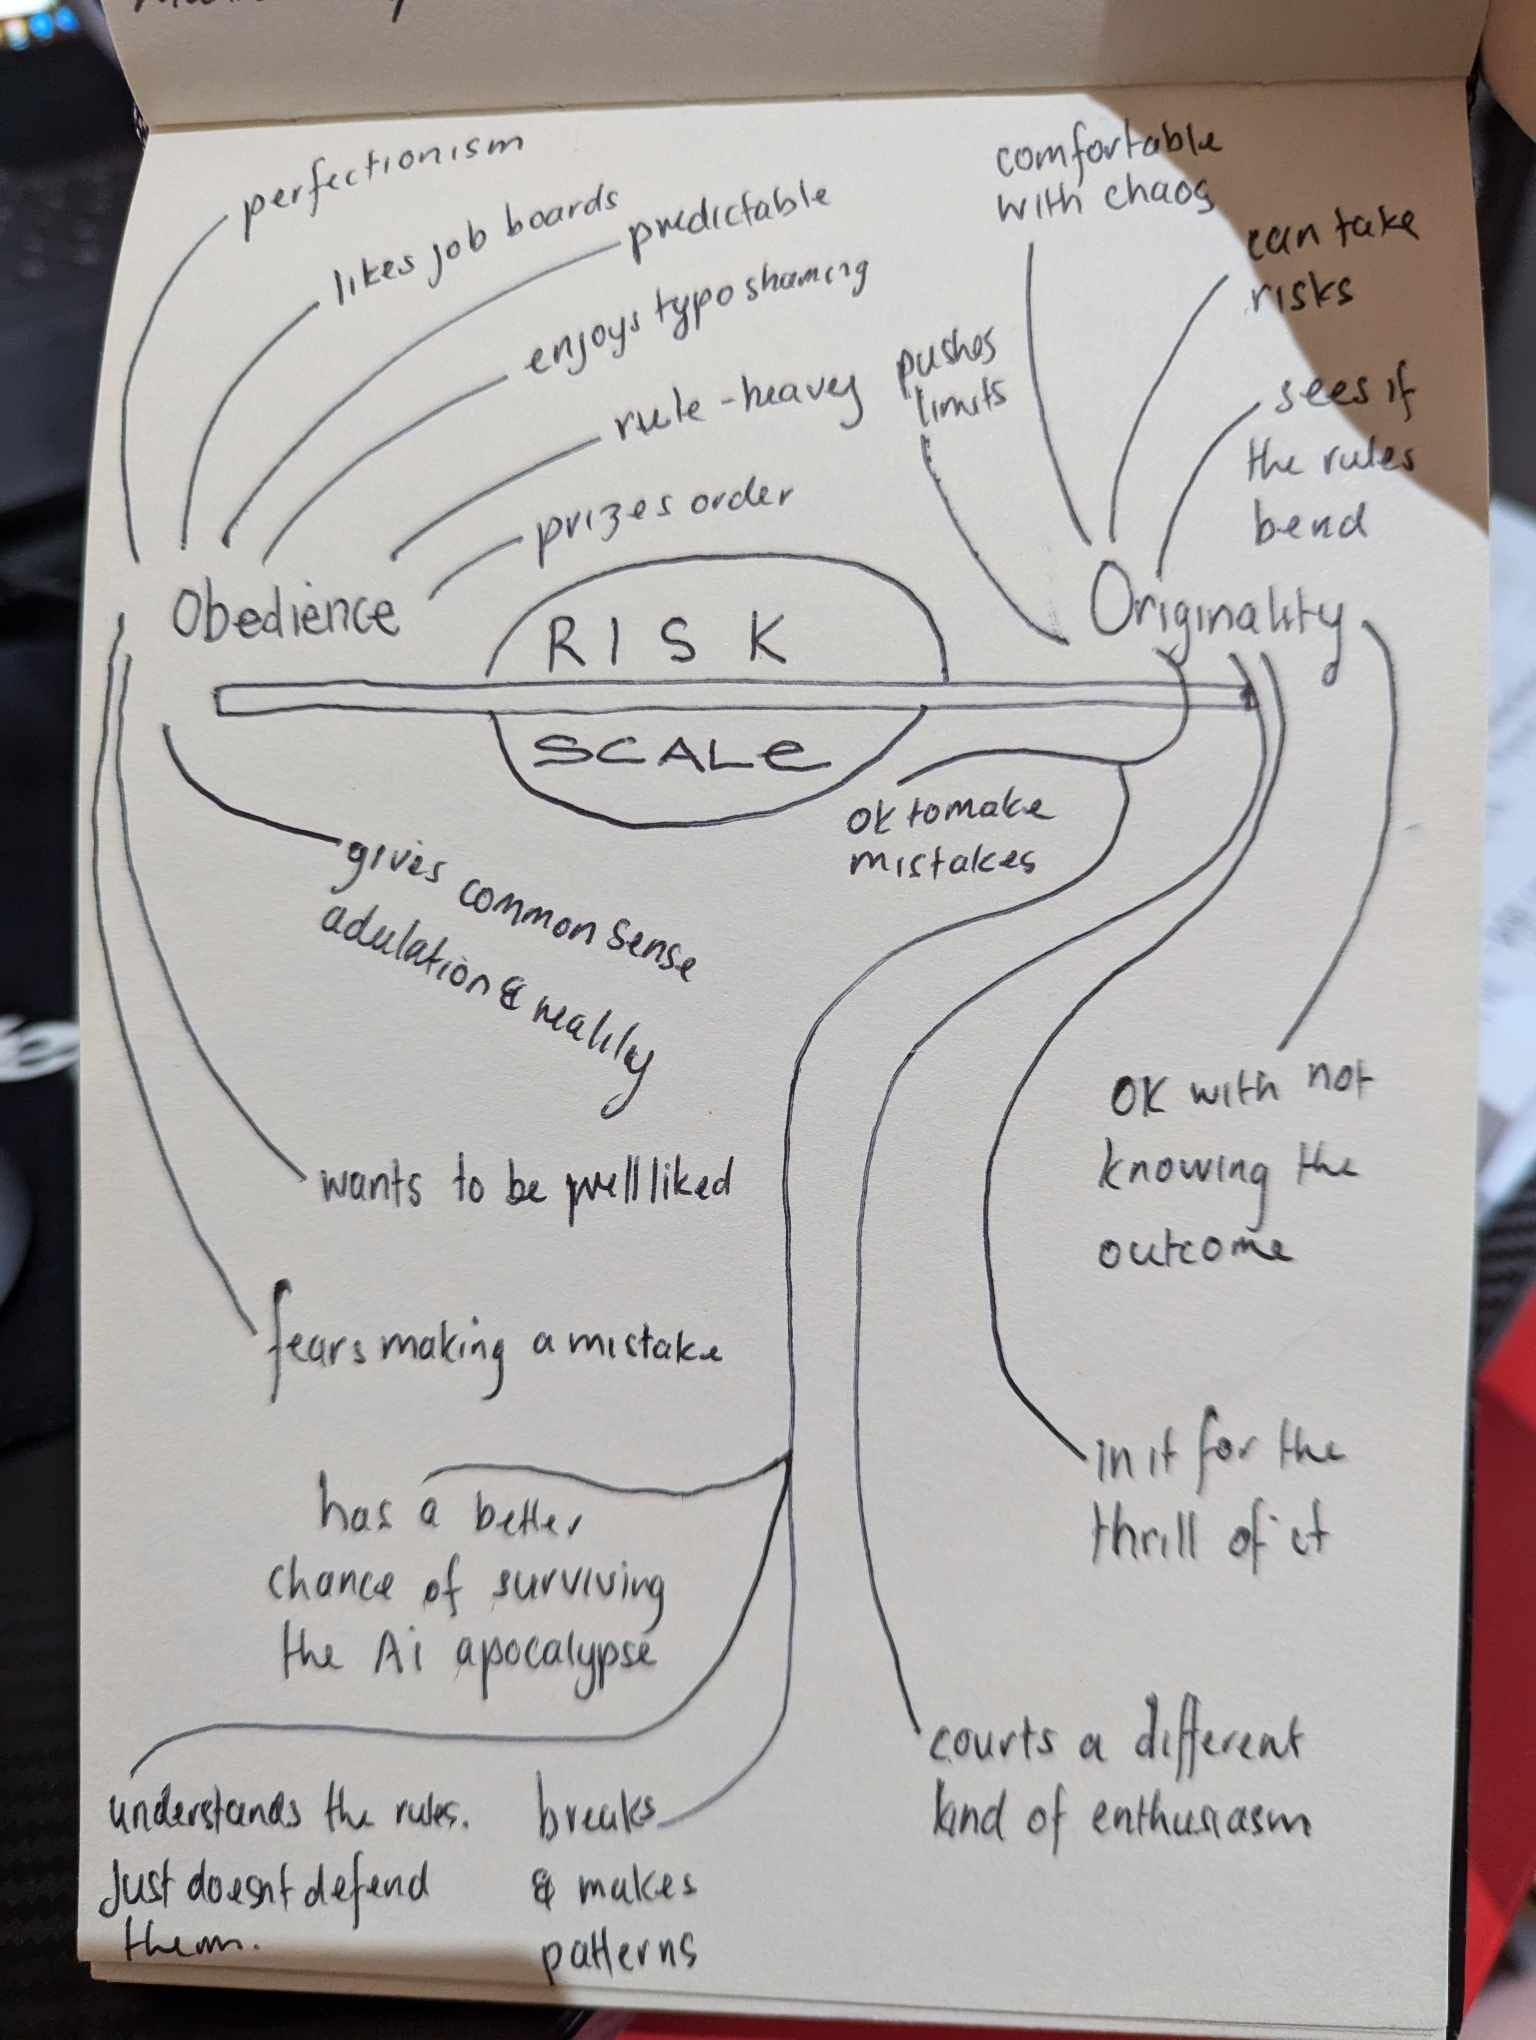 perfectionism
likes job boards
predictable
enjoys typo shaming
rule-heavy
prizes order
Obedience
pushes
limits
comfortable
with chaos
can take
risks
sees if
the rules
bend
Originality
RISK
SCALE
gives common sense
adulation & reality
wants to be well liked
fears making a mistake
ok to make
mistakes
has a better
chance of surviving
the Ai apocalypse
understands the rules.
Just doesnt defend
them.
breaks
& makes
patterns
OK with not
knowing the
outcome
in it for the
thrill of it
courts a different
kind of enthusiasm